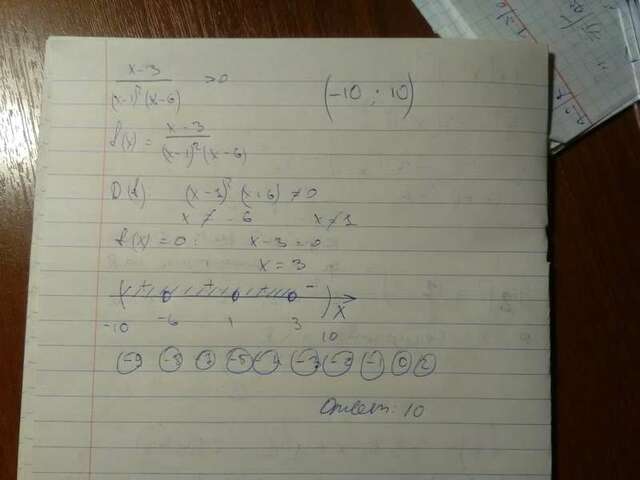 x-3 / (x-1)² (x-6) >0
(-10 ; 10)
f(x) = x-3 / (x-1)² (x-6)
D(f) (x-1)² (x-6) ≠0
x ≠ -6 x ≠ 1
f(x) = 0 : x-3=0
x = 3
+ + + - x
-10 -6 1 3 10
-9 -8 -5 -4 -3 -2 -1 0 2
Ответ: 10